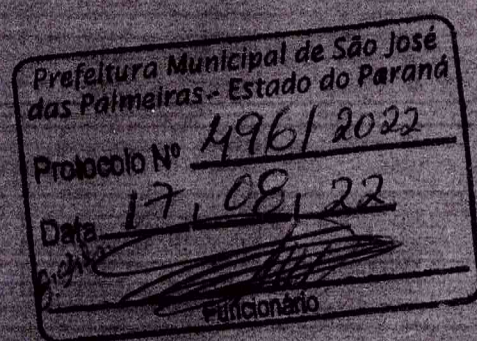 Prefeitura Municipal de São José
das Palmeiras - Estado do Paraná
Protocolo Nº 496/2022
Data 17, 08, 22
Funcionário